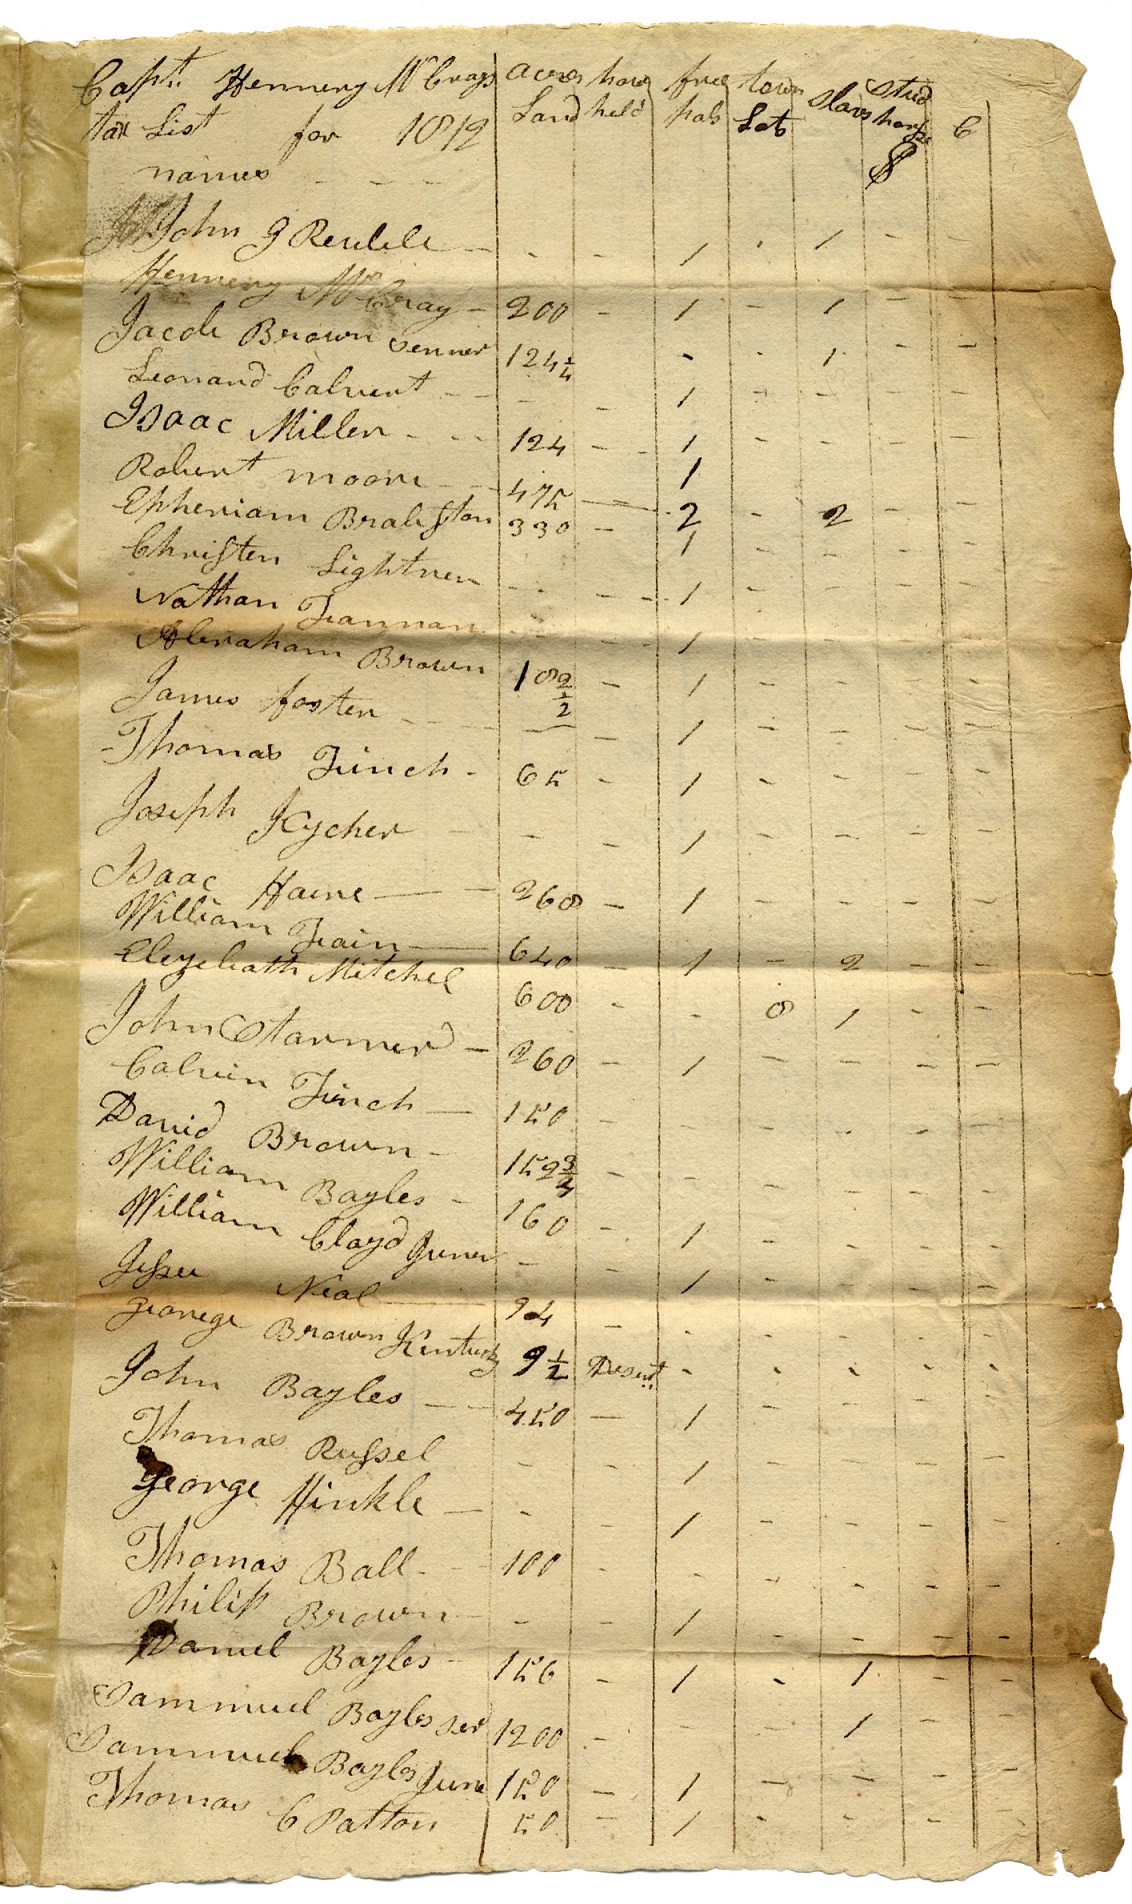 Capt. Hennery McCrays acres how free town slavs stud C
tax List for 1812 Land held pols Lots horse
names - - - $
John G Reubele - - - 1 . 1 - -
Hennery McCray - 200 - 1 - 1 - -
Jacob Brown senner 124 1/4 - . 1 - -
Leonard Calvert - - - - 1 - - - -
Isaac Miller - - - 124 - 1 - - - -
Robert moore - - 475 - 1
Epheriam Brabston 330 - 2 - 2 - -
Christen Lightner - - 1 - - - -
Nathan - - 1 - - - -
Abraham Brown 182 1/2 - 1 - - - -
James foster - - - - 1 - - - -
Thomas Finch - 65 - 1 - - - -
Joseph Kycher - - - 1 - - - -
Isaac Haine - - 268 - 1 - - - -
William Fain - 640 - 1 - 2 - -
Elezebath Mitchel 600 - - 8 1 - -
John Starmer - 260 - 1 - - - -
Calvin Finch - 150 - - - - - -
David Brown - 152 3/4 - - - - - -
William Bayles - 160 - 1 - - - -
William Cloyd Juner - - 1 - - - -
Jessee Neal - 94 - - - - - -
George Brown Kentucky 9 1/2 - - - - -
John Bayles - - 450 - 1 - - - -
Thomas Russel - - 1 - - - -
George Hinkle - - - 1 - - - -
Thomas Ball - - 100 - - - - - -
Philip Brown - - - 1 - - - -
Daniel Bayles - 156 - 1 - 1 - -
Sammuel Bayles ser 1200 - - - 1 - -
Sammuel Bayles June 150 - 1 - - - -
Thomas C Patton 50 - 1 - - - -